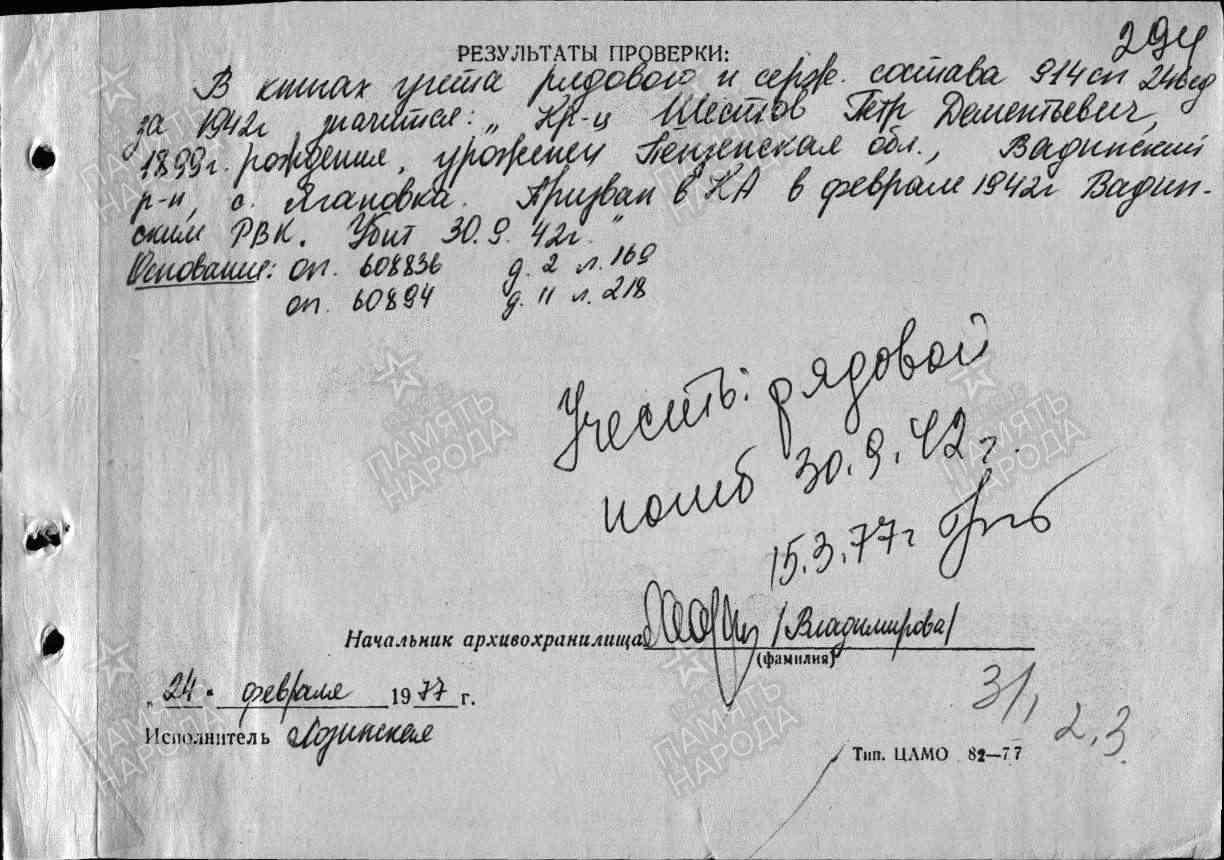 294
РЕЗУЛЬТАТЫ ПРОВЕРКИ:
В книгах учета рядового и серж. состава 914 сп
за 1942г значится: „Кр-ц Шестов Петр Дементьевич,
1899г. рождения, уроженец Пензенская обл., Вадинский
р-н, с. Ягановка. Призван в КА в феврале 1942г Вадин-
ским РВК. Убит 30.9.42г."
Основание: оп. 608836 д. 2 л. 169
оп. 60894 д. 11 л. 218
Учесть: рядовой
погиб 30.9.42г.
15.3.77г
Начальник архивохранилища /Владимирова/
(фамилия)
„24" февраля 1977 г.
Исполнитель Лозинская
31, 2.3
Тип. ЦАМО 82—77
ПАМЯТЬ НАРОДА
ПАМЯТЬ НАРОДА
ПАМЯТЬ НАРОДА
ПАМЯТЬ НАРОДА